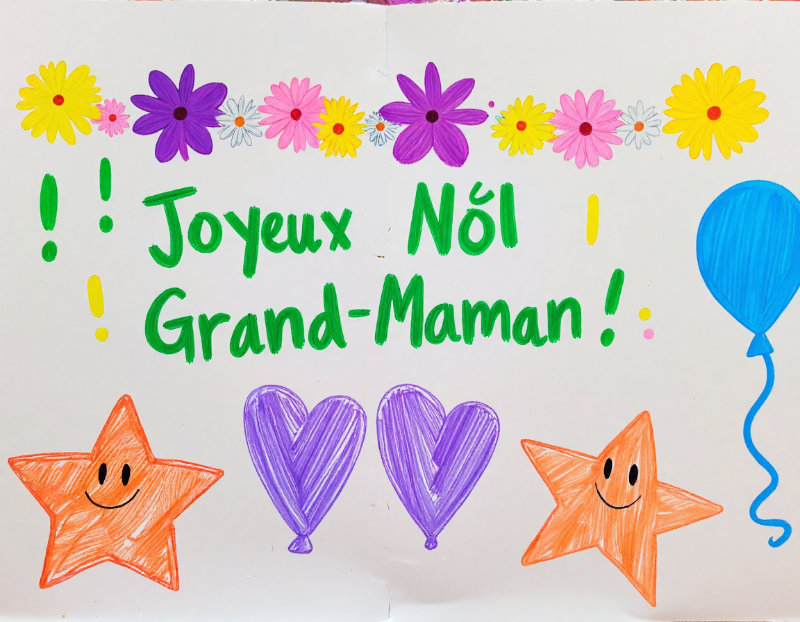 ! ! Joyeux Nŏl
! Grand-Maman !